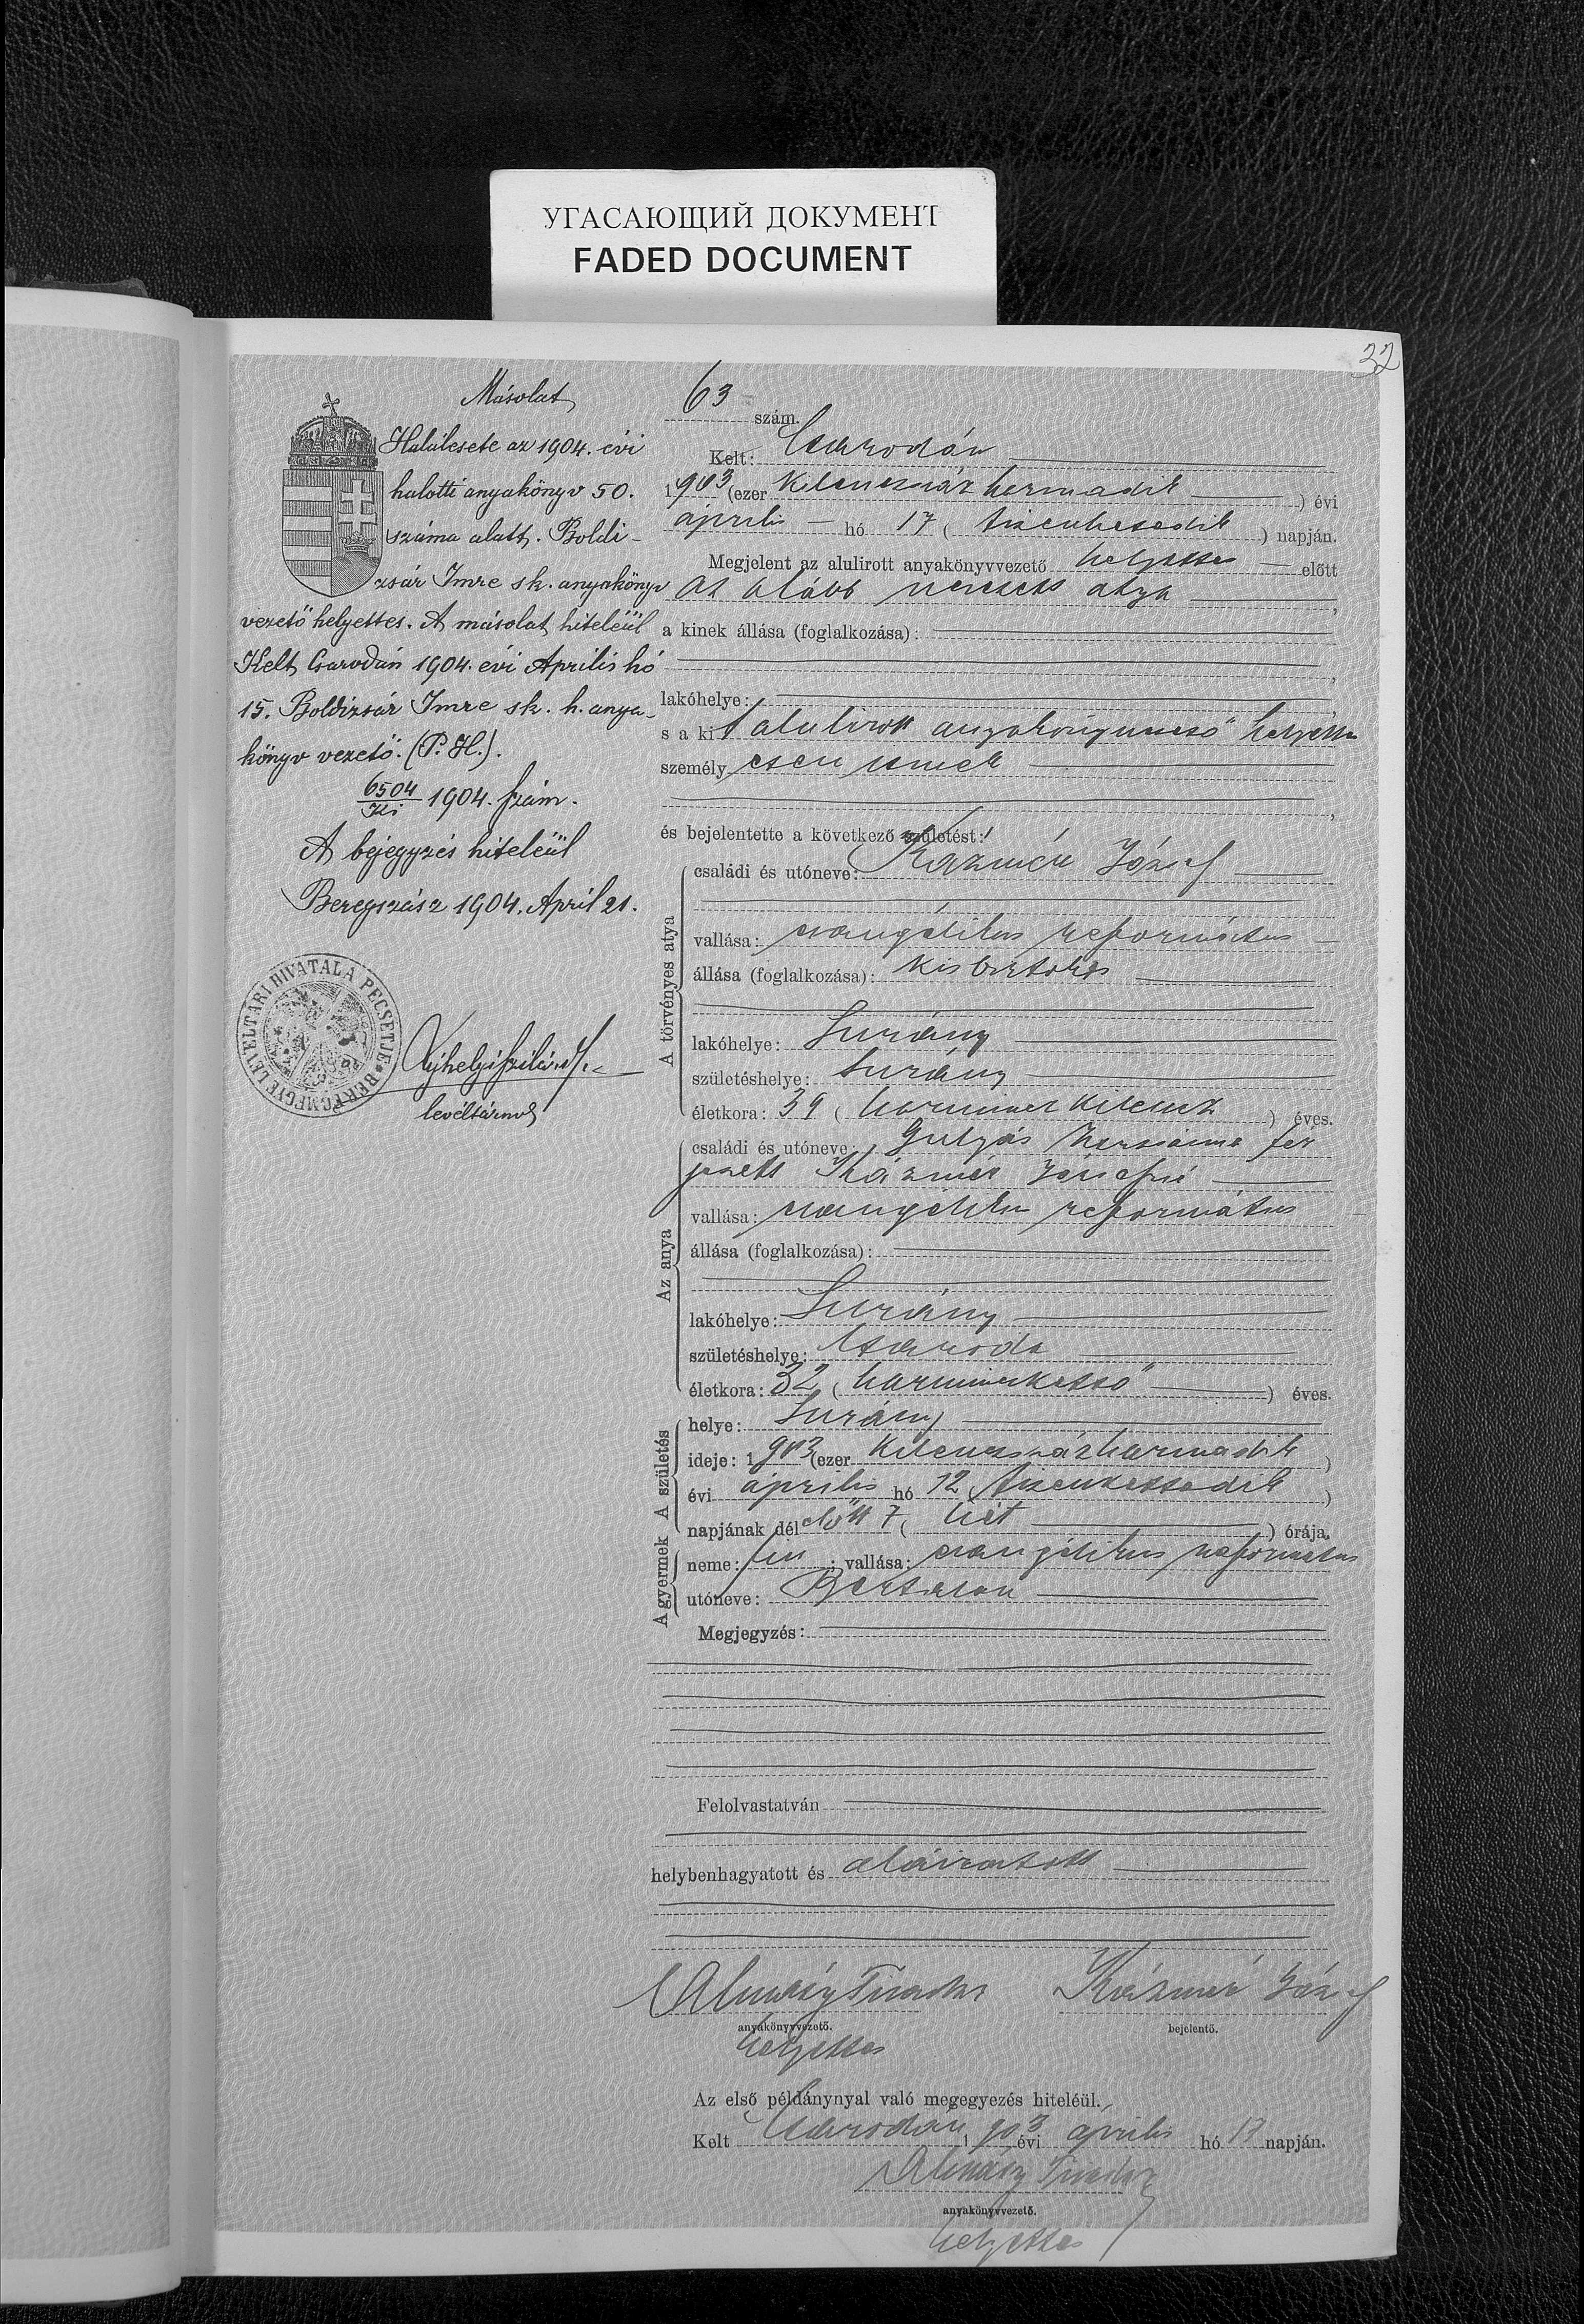 УГАСАЮЩИЙ ДОКУМЕНТ
FADED DOCUMENT
32
Másolat
Halálesete az 1904. évi
halotti anyakönyv 50.
száma alatt. Boldi-
zsár Imre sk. anyakönyv
vezető helyettes. A másolat hiteléül
Kelt Csarodán 1904. évi Április hó
15. Boldizsár Imre sk. h. anya-
könyv vezető. (P. H.).
6504/Ki 1904. szám.
A bejegyzés hiteléül
Beregszász 1904. April 21.
LEVÉLTÁRI HIVATALA PECSÉTJE * BEREGMEGYE
Ujhelyi Szilárd
levéltárnok
63 szám.
Kelt: Csarodán
1903 (ezer kilencszáz harmadik ) évi
április hó 17 ( tizenhetedik ) napján.
Megjelent az alulirott anyakönyvvezető helyettes előtt
az alább nevezett atya ,
a kinek állása (foglalkozása):
,
lakóhelye: ,
s a kit alulirott anyakönyvvezető helyettes
személyesen ismer
,
és bejelentette a következő születést:
A törvényes atya
családi és utóneve: Kázmér József
vallása: evangélikus református
állása (foglalkozása): kisbirtokos
lakóhelye: Surány
születéshelye: Surány
életkora: 39 ( harminc kilencz ) éves.
Az anya
családi és utóneve: Gulyás Zsuzsánna fér
jezett Kázmér Józsefné
vallása: evangélikus református
állása (foglalkozása):
lakóhelye: Surány
születéshelye: Csaroda
életkora: 32 ( harminckettő ) éves.
A gyermek A születés
helye: Surány
ideje: 1903 (ezer kilencszázharmadik )
évi április hó 12 ( tizenkettedik )
napjának délelőtt 7 ( hét ) órája.
neme: fiu ; vallása: evangélikus református
utóneve: Bertalan
Megjegyzés:
Felolvastatván
helybenhagyatott és aláiratott
Almásy Tivadar Kázmér József
anyakönyvvezető. bejelentő.
helyettes
Az első példánynyal való megegyezés hiteléül.
Kelt Csarodán 1903 évi április hó 17 napján.
Almásy Tivadar
anyakönyvvezető.
helyettes